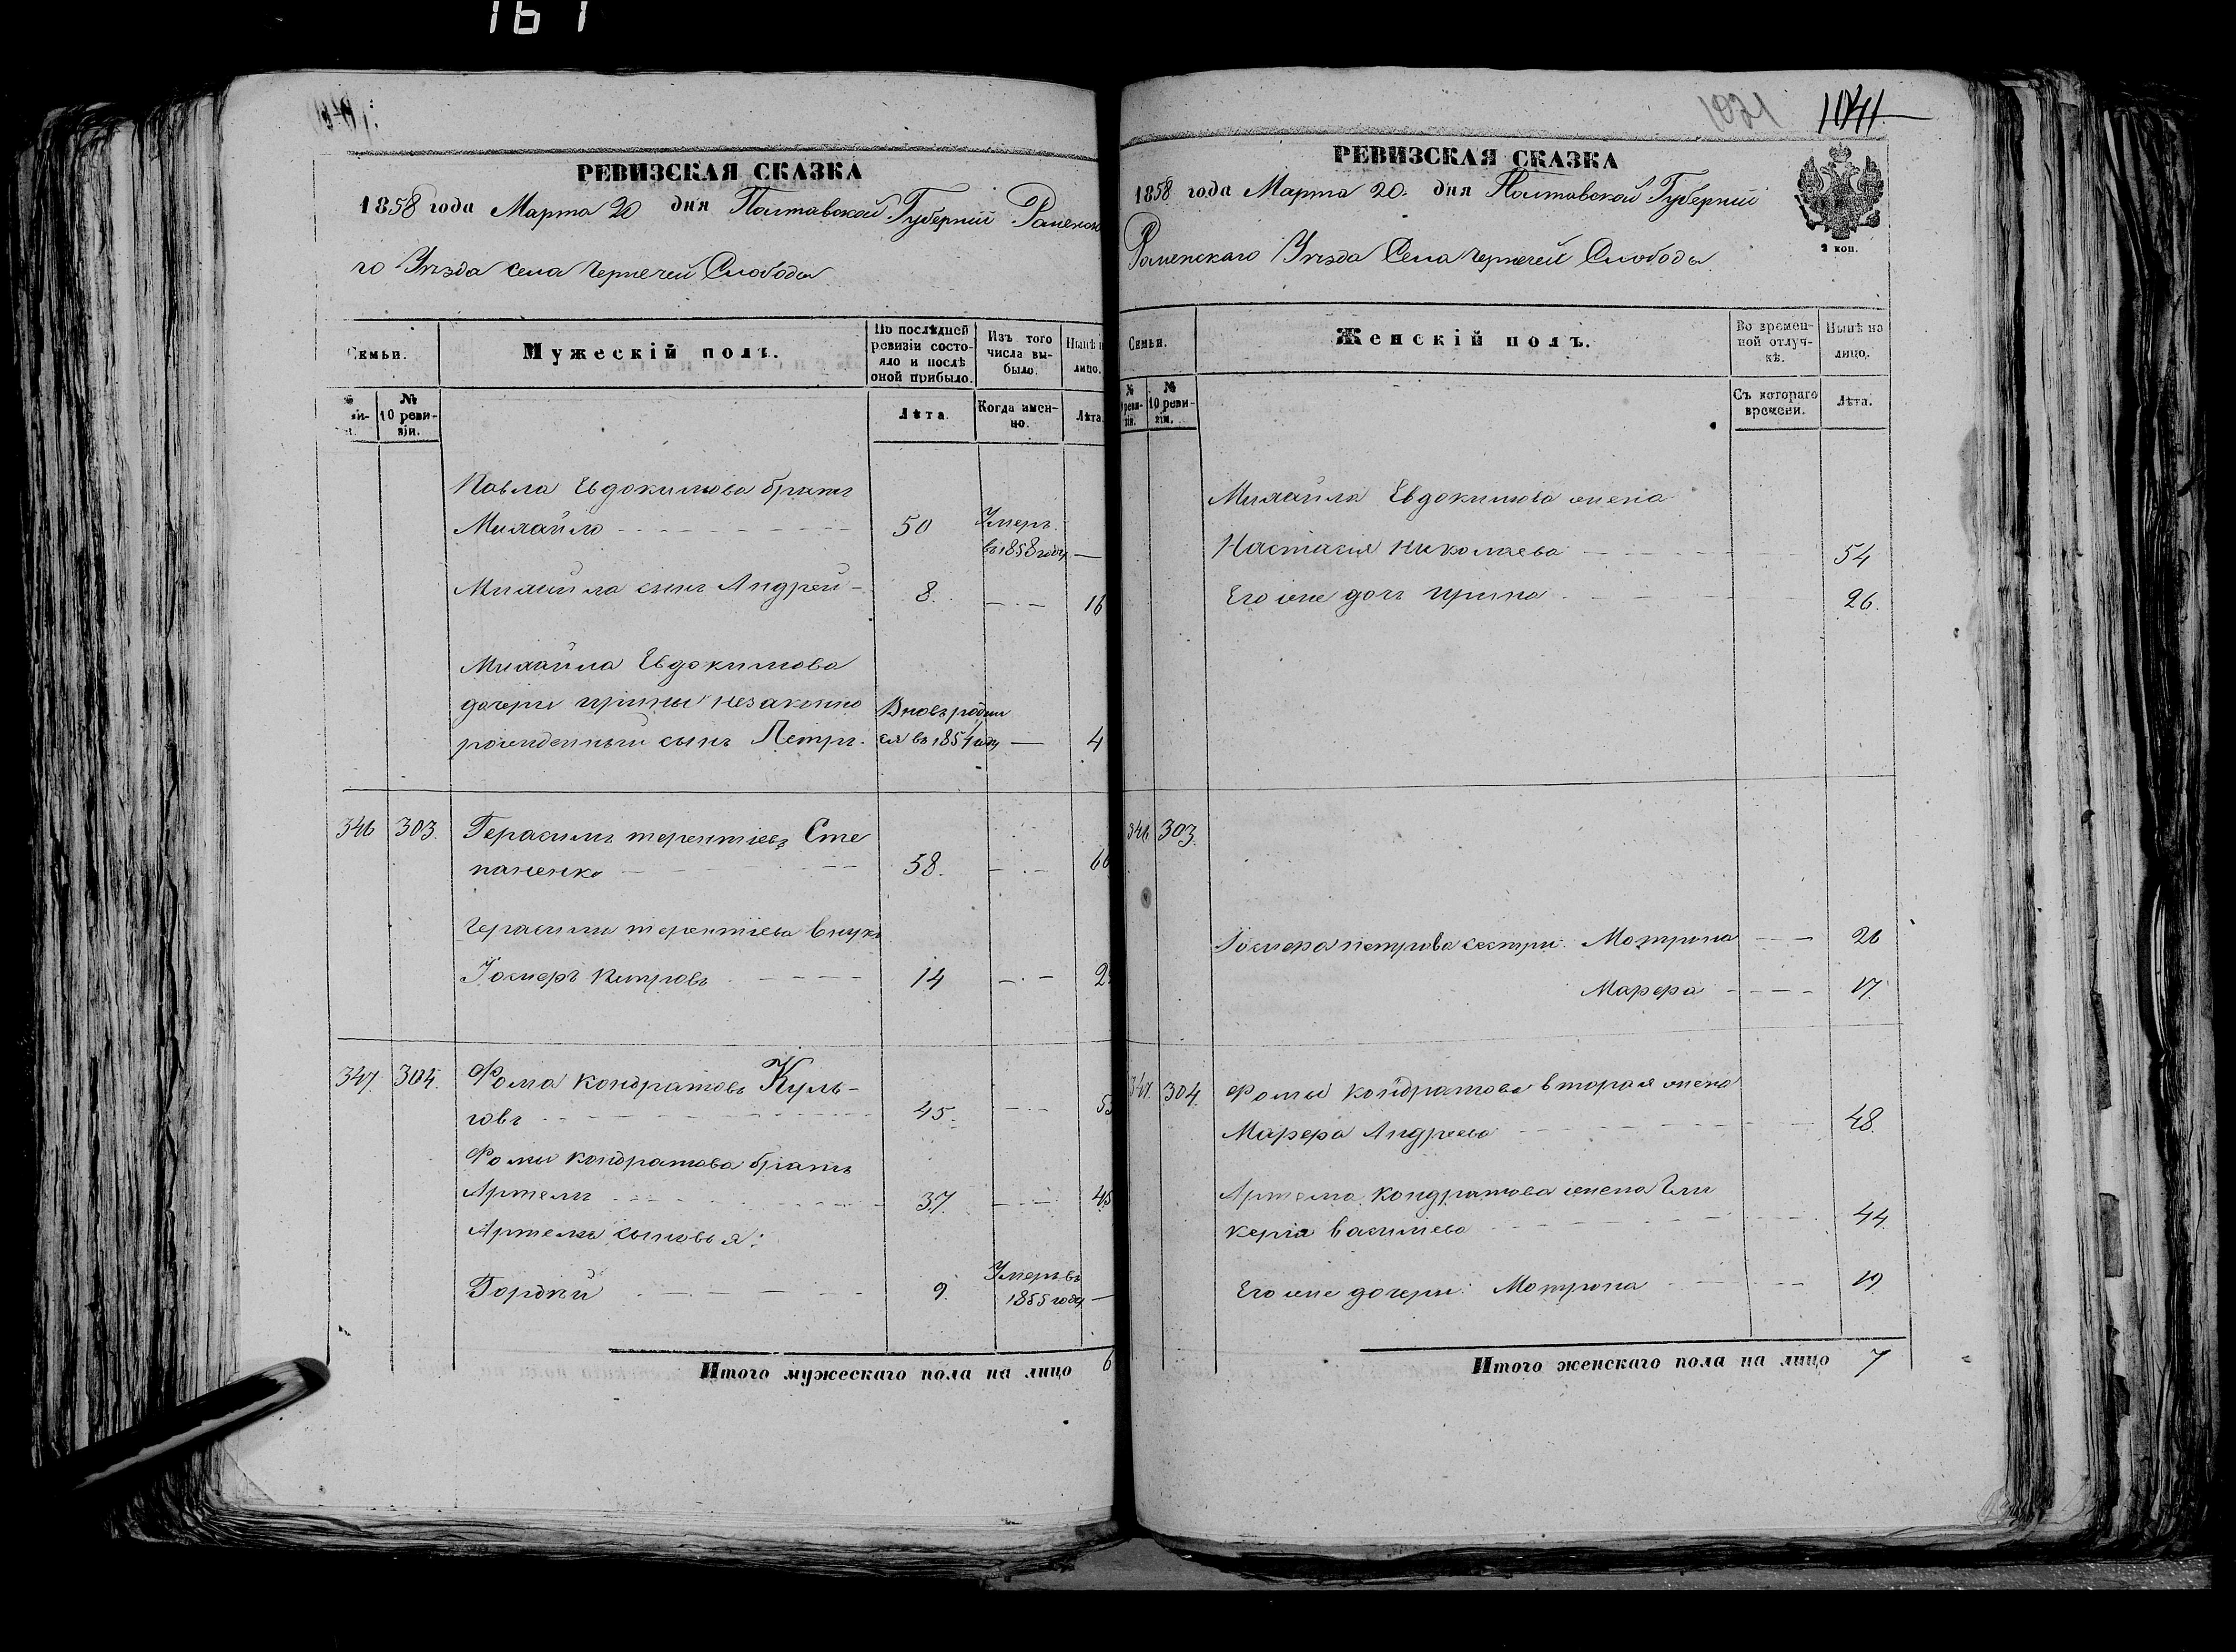 161
РЕВИЗСКАЯ СКАЗКА
1858 года Марта 20 дня Полтавской Губерніи Роменска
го Уѣзда села Чернечей Слободы
Семьи.
Мужескій полъ.
По послѣдней ревизіи состояло и послѣ оной прибыло.
Изъ того числа выбыло.
Нынѣ н
лицо.
№
10 реви-
зіи.
Лѣта.
Когда имен-
но.
Лѣта
Павла Евдокимова братъ
Михайло 50 Умеръ
въ 1858 году —
Михайла сынъ Андрей 8. 16
Михайла Евдокимова
дочери Ирины незаконно Вновь родил
рожденный сынъ Петръ. ся въ 1854 году — 4
346 303. Герасимъ терентіевъ Сте
паненко 58. 66
Герасима терентіева внукъ
Іосифъ Петровъ 14 2
347. 304. Фома Кондратовъ Куль-
говъ 45. 53
Фомы Кондратова братъ
Артемъ 37. 45
Артема сыновья:
Гордѣй 9. Умеръ въ
1855 году —
Итого мужескаго пола на лицо 6
1021 1041
РЕВИЗСКАЯ СКАЗКА
1858 года Марта 20. дня Полтавской Губерніи
Роменскаго Уѣзда Села Чернечей Слободы
2 коп.
Семьи.
Женскій полъ.
Во времен-
ной отлуч-
кѣ.
Нынѣ на
лицо.
№
реви-
зіи.
№
10 реви-
зіи.
Съ котораго
времени.
Лѣта.
Михайла Евдокимова жена
Настасія Николаева 54
Его же дочь Ирина 26.
346 303.
Іосифа петрова сестры: Мотрона 26
Марфа 17.
347. 304. Фомы Кондратова вторая жена
Марфа Андреева 48.
Артема Кондратова жена Гли
керія Васильева 44.
Его же дочери: Мотрона 19.
Итого женскаго пола на лицо 7